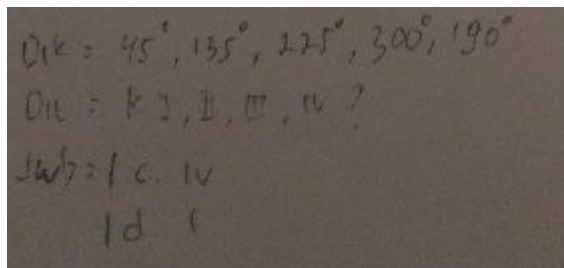 Dik = 45°, 135°, 225°, 300°, 190°
Dit = k I, II, III, IV ?
Jwb = | c. IV
| d I